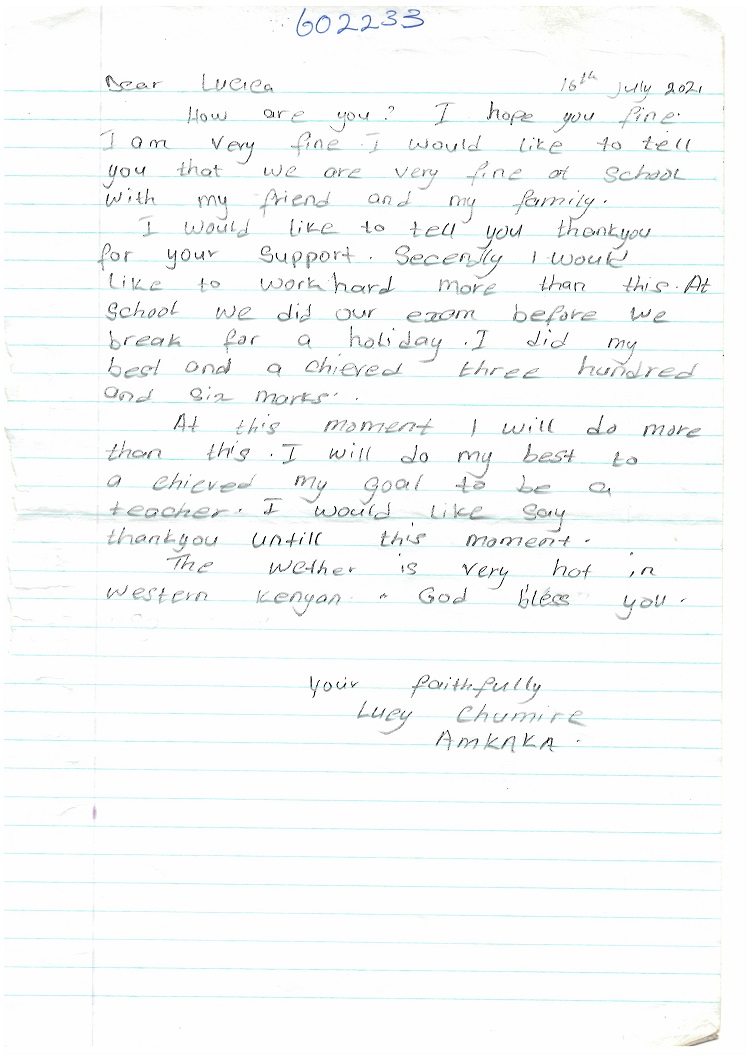 602233
Dear Luciea 16th July 2021
How are you? I hope you fine.
I am very fine. I would like to tell
you that we are very fine at school
with my friend and my family.
I would like to tell you thankyou
for your support. Secently I would
like to work hard more than this. At
school we did our exam before we
break for a holiday. I did my
best and a chieved three hundred
and six marks.
At this moment I will do more
than this. I will do my best to
a chieved my goal to be a
teacher. I would like say
thankyou untill this moment.
The wether is very hot in
western kenyan. God bless you.
your faithfully
Lucy Chumire
AMKAKA.